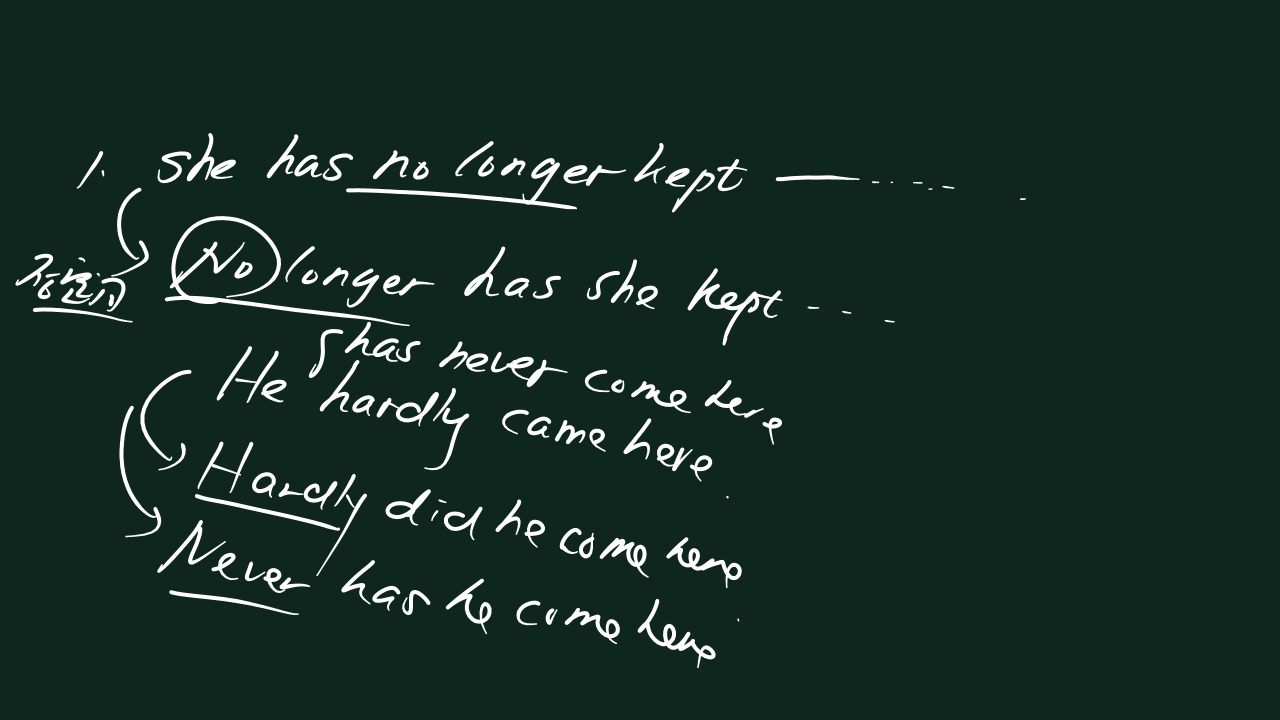 1. she has no longer kept
No longer has she kept - - -
has never come here
He hardly came here.
Hardly did he come here
Never has he come here